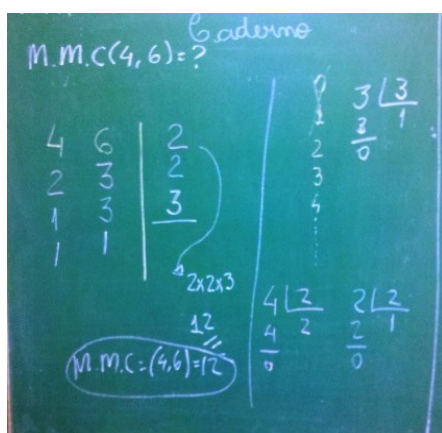 Caderno
M.M.C(4,6)=?
4 6 | 2
2 3 | 2
1 3 | 3
1 1
2x2x3
12
M.M.C=(4,6)=12
0
1
2
3
4
......
3 | 3
3 1
0
4 | 2
4 2
0
2 | 2
2 1
0